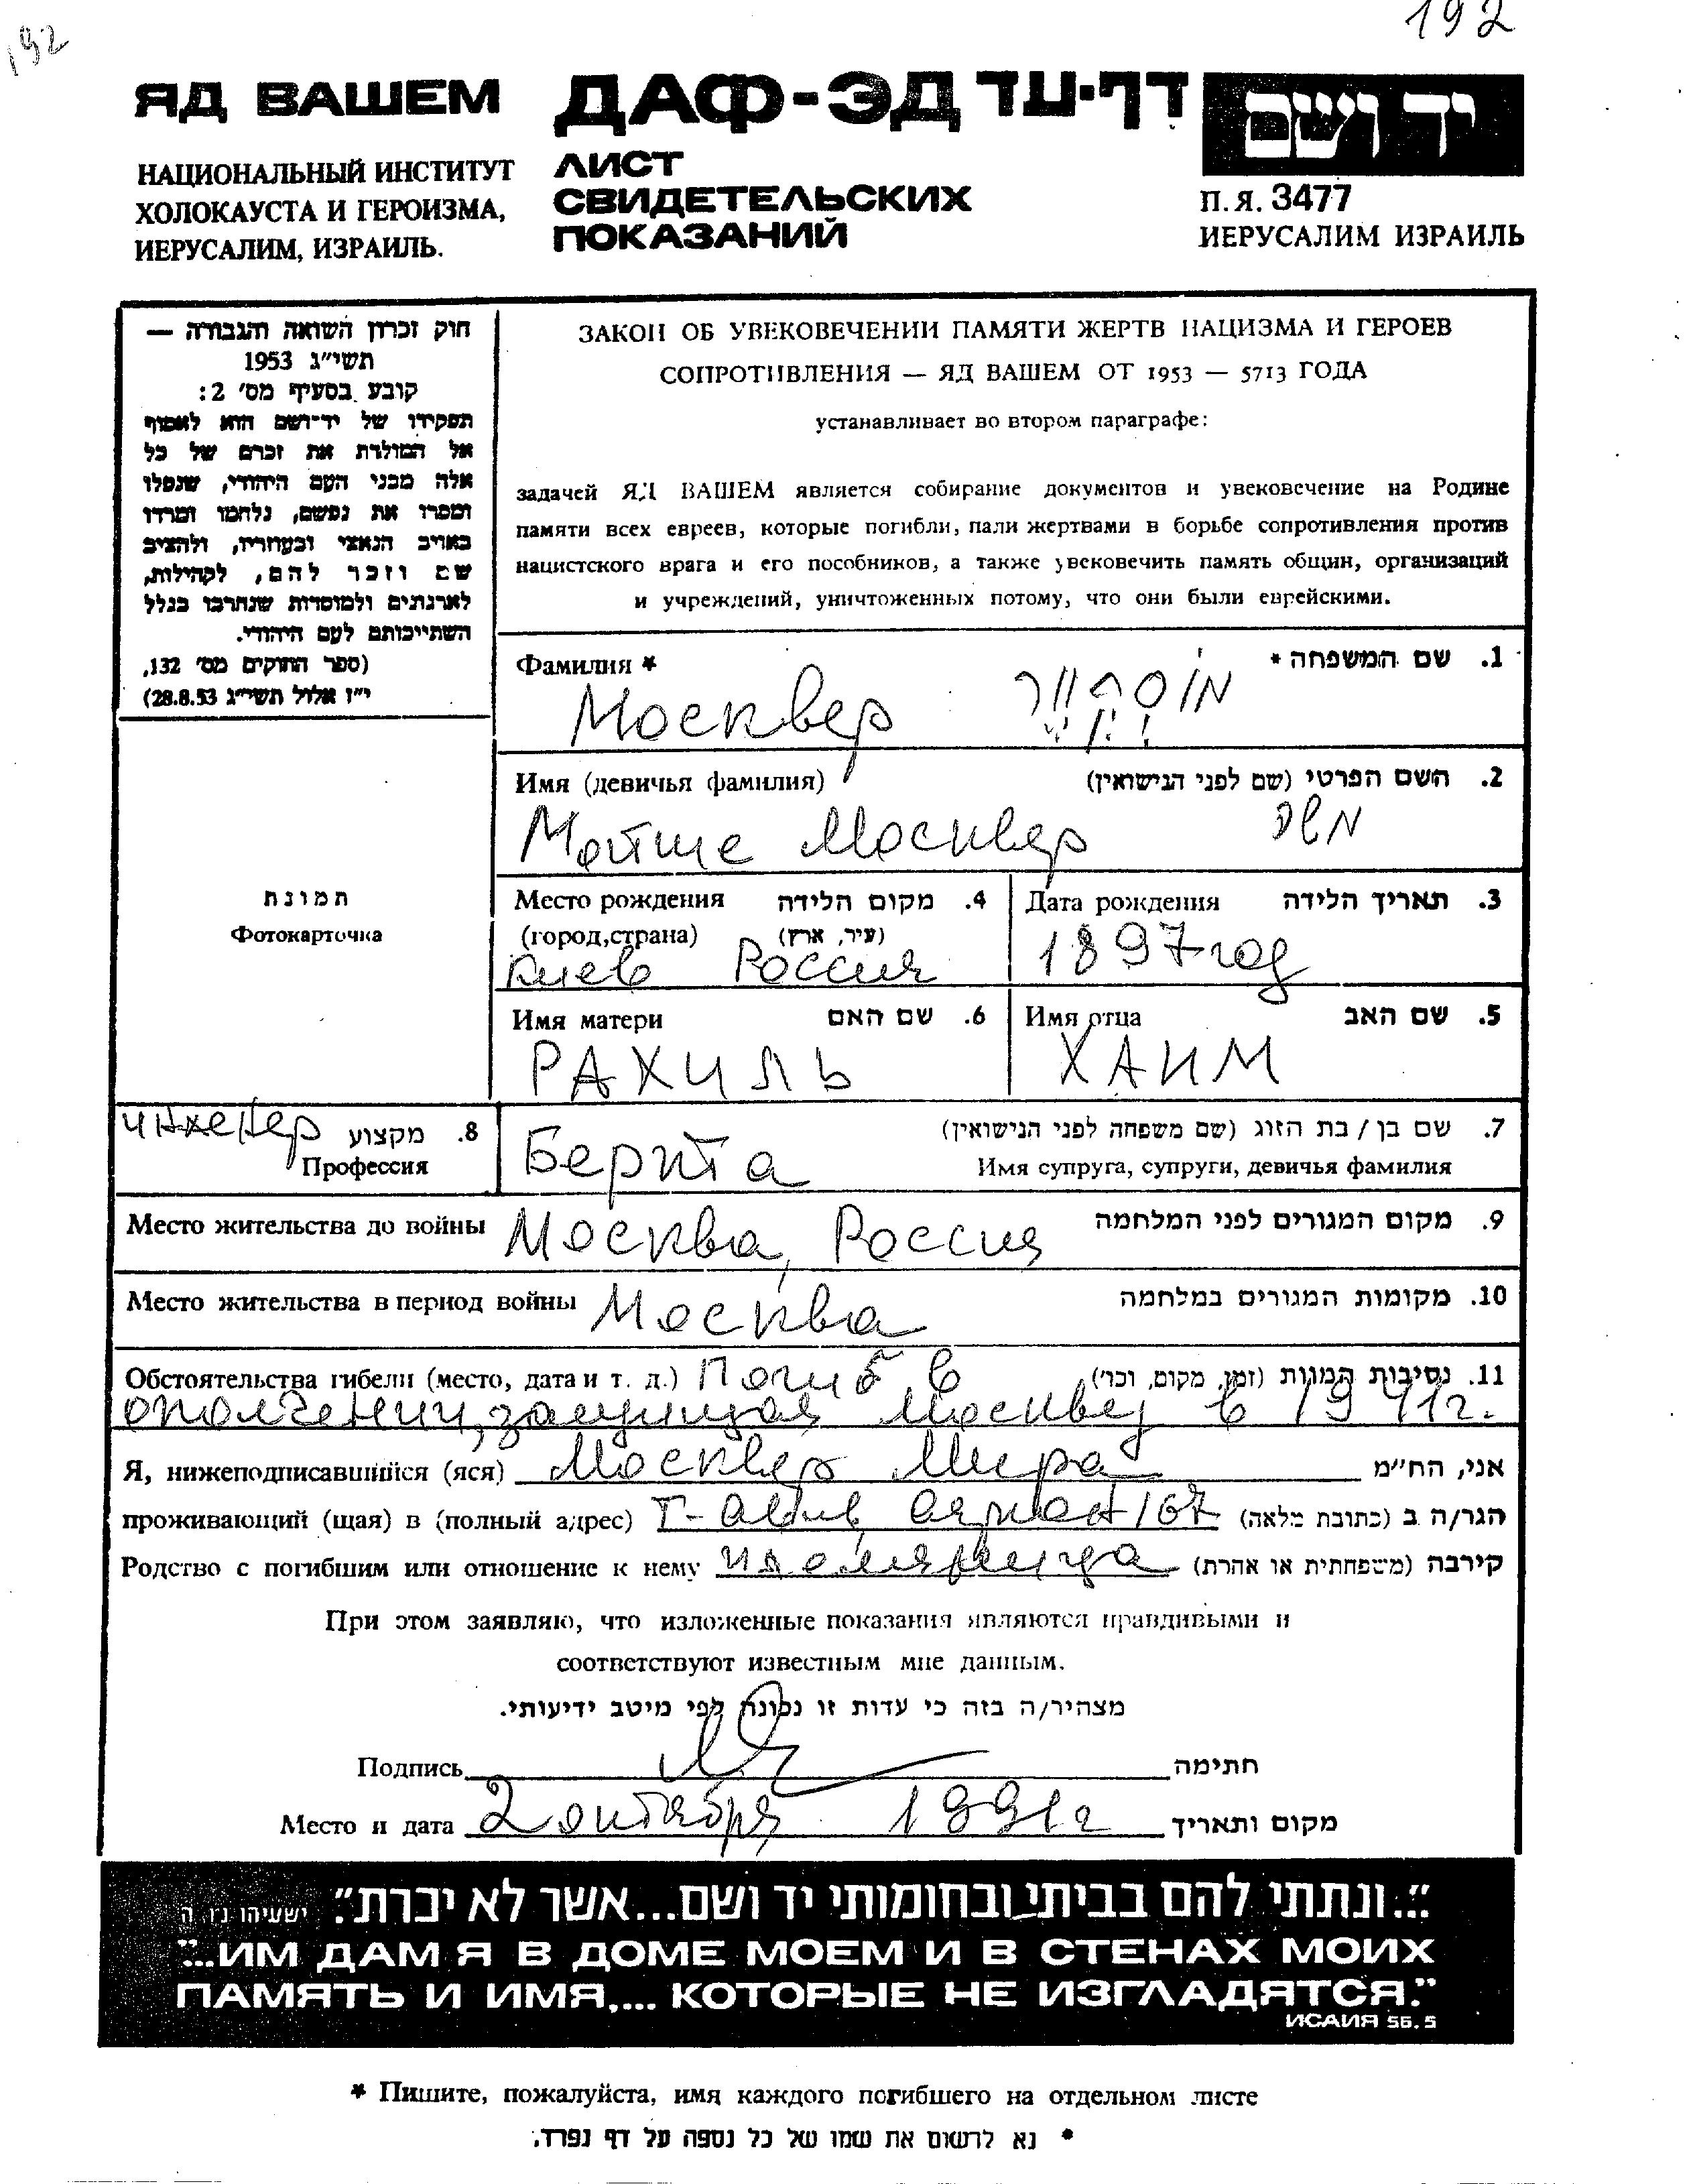 192
192
ЯД ВАШЕМ
ДАФ-ЭД דף-עד
יד ושם
НАЦИОНАЛЬНЫЙ ИНСТИТУТ
ХОЛОКАУСТА И ГЕРОИЗМА,
ИЕРУСАЛИМ, ИЗРАИЛЬ.
ЛИСТ
СВИДЕТЕЛЬСКИХ
ПОКАЗАНИЙ
П.Я. 3477
ИЕРУСАЛИМ ИЗРАИЛЬ
חוק זכרון השואה והגבורה —
תשי"ג 1953
קובע בסעיף מס' 2:
תפקידו של יד-ושם הוא לאסוף
אל המולדת את זכרם של כל
אלה מבני העם היהודי, שנפלו
ומסרו את נפשם, נלחמו ומרדו
באויב הנאצי ובעוזריו, ולהציב
שם וזכר להם, לקהילות,
לארגונים ולמוסדות שנחרבו בגלל
השתייכותם לעם היהודי.
(ספר החוקים מס' 132,
י"ז אלול תשי"ג 28.8.53)
ЗАКОН ОБ УВЕКОВЕЧЕНИИ ПАМЯТИ ЖЕРТВ НАЦИЗМА И ГЕРОЕВ
СОПРОТИВЛЕНИЯ — ЯД ВАШЕМ ОТ 1953 — 5713 ГОДА
устанавливает во втором параграфе:
задачей ЯД ВАШЕМ является собирание документов и увековечение на Родине
памяти всех евреев, которые погибли, пали жертвами в борьбе сопротивления против
нацистского врага и его пособников, а также увековечить память общин, организаций
и учреждений, уничтоженных потому, что они были еврейскими.
Фамилия * 1. שם המשפחה *
Москвер
Имя (девичья фамилия) 2. השם הפרטי (שם לפני הנישואין)
Мойше Москвер משה
תמונת
Фотокарточка
Место рождения 4. מקום הלידה
(город,страна) (עיר, ארץ)
Киев Россия
Дата рождения 3. תאריך הלידה
1897 год
Имя матери 6. שם האם
РАХИЛЬ
Имя отца 5. שם האב
ХАИМ
инженер 8. מקצוע
Профессия
Берта 7. שם בן / בת הזוג (שם משפחה לפני הנישואין)
Имя супруга, супруги, девичья фамилия
Место жительства до войны Москва, Россия 9. מקום המגורים לפני המלחמה
Место жительства в период войны Москва 10. מקומות המגורים במלחמה
Обстоятельства гибели (место, дата и т. д.) Погиб в 11. נסיבות המוות (זמן, מקום, וכו')
ополчении, защищая Москву в 1941г.
Я, нижеподписавшийся (яся) Москвер Мира אני, הח"מ
проживающий (щая) в (полный адрес) Т-Авив 167 הגר/ה ב (כתובת מלאה)
Родство с погибшим или отношение к нему племянница קירבה (משפחתית או אחרת)
При этом заявляю, что изложенные показания являются правдивыми и
соответствуют известным мне данным.
מצהיר/ה בזה כי עדות זו נכונה לפי מיטב ידיעותי.
Подпись חתימה
Место и дата 2 октября 1991г מקום ותאריך
"...ונתתי להם בביתי ובחומותי יד ושם...אשר לא יכרת". ישעיהו נו, ה
"...ИМ ДАМ Я В ДОМЕ МОЕМ И В СТЕНАХ МОИХ
ПАМЯТЬ И ИМЯ,... КОТОРЫЕ НЕ ИЗГЛАДЯТСЯ."
ИСАИЯ 56.5
* Пишите, пожалуйста, имя каждого погибшего на отдельном листе
* נא לרשום את שמו של כל נספה על דף נפרד.